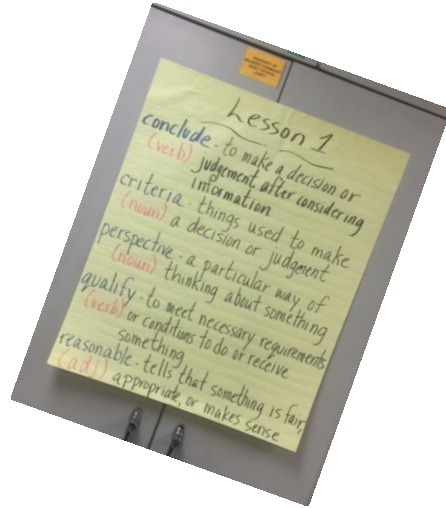 Lesson 1
conclude - to make a decision or
(verb) judgement after considering
information
criteria - things used to make
(noun) a decision or judgement
perspective - a particular way of
(noun) thinking about something
qualify - to meet necessary requirements
(verb) or conditions to do or receive
something
reasonable - tells that something is fair,
(adj) appropriate, or makes sense